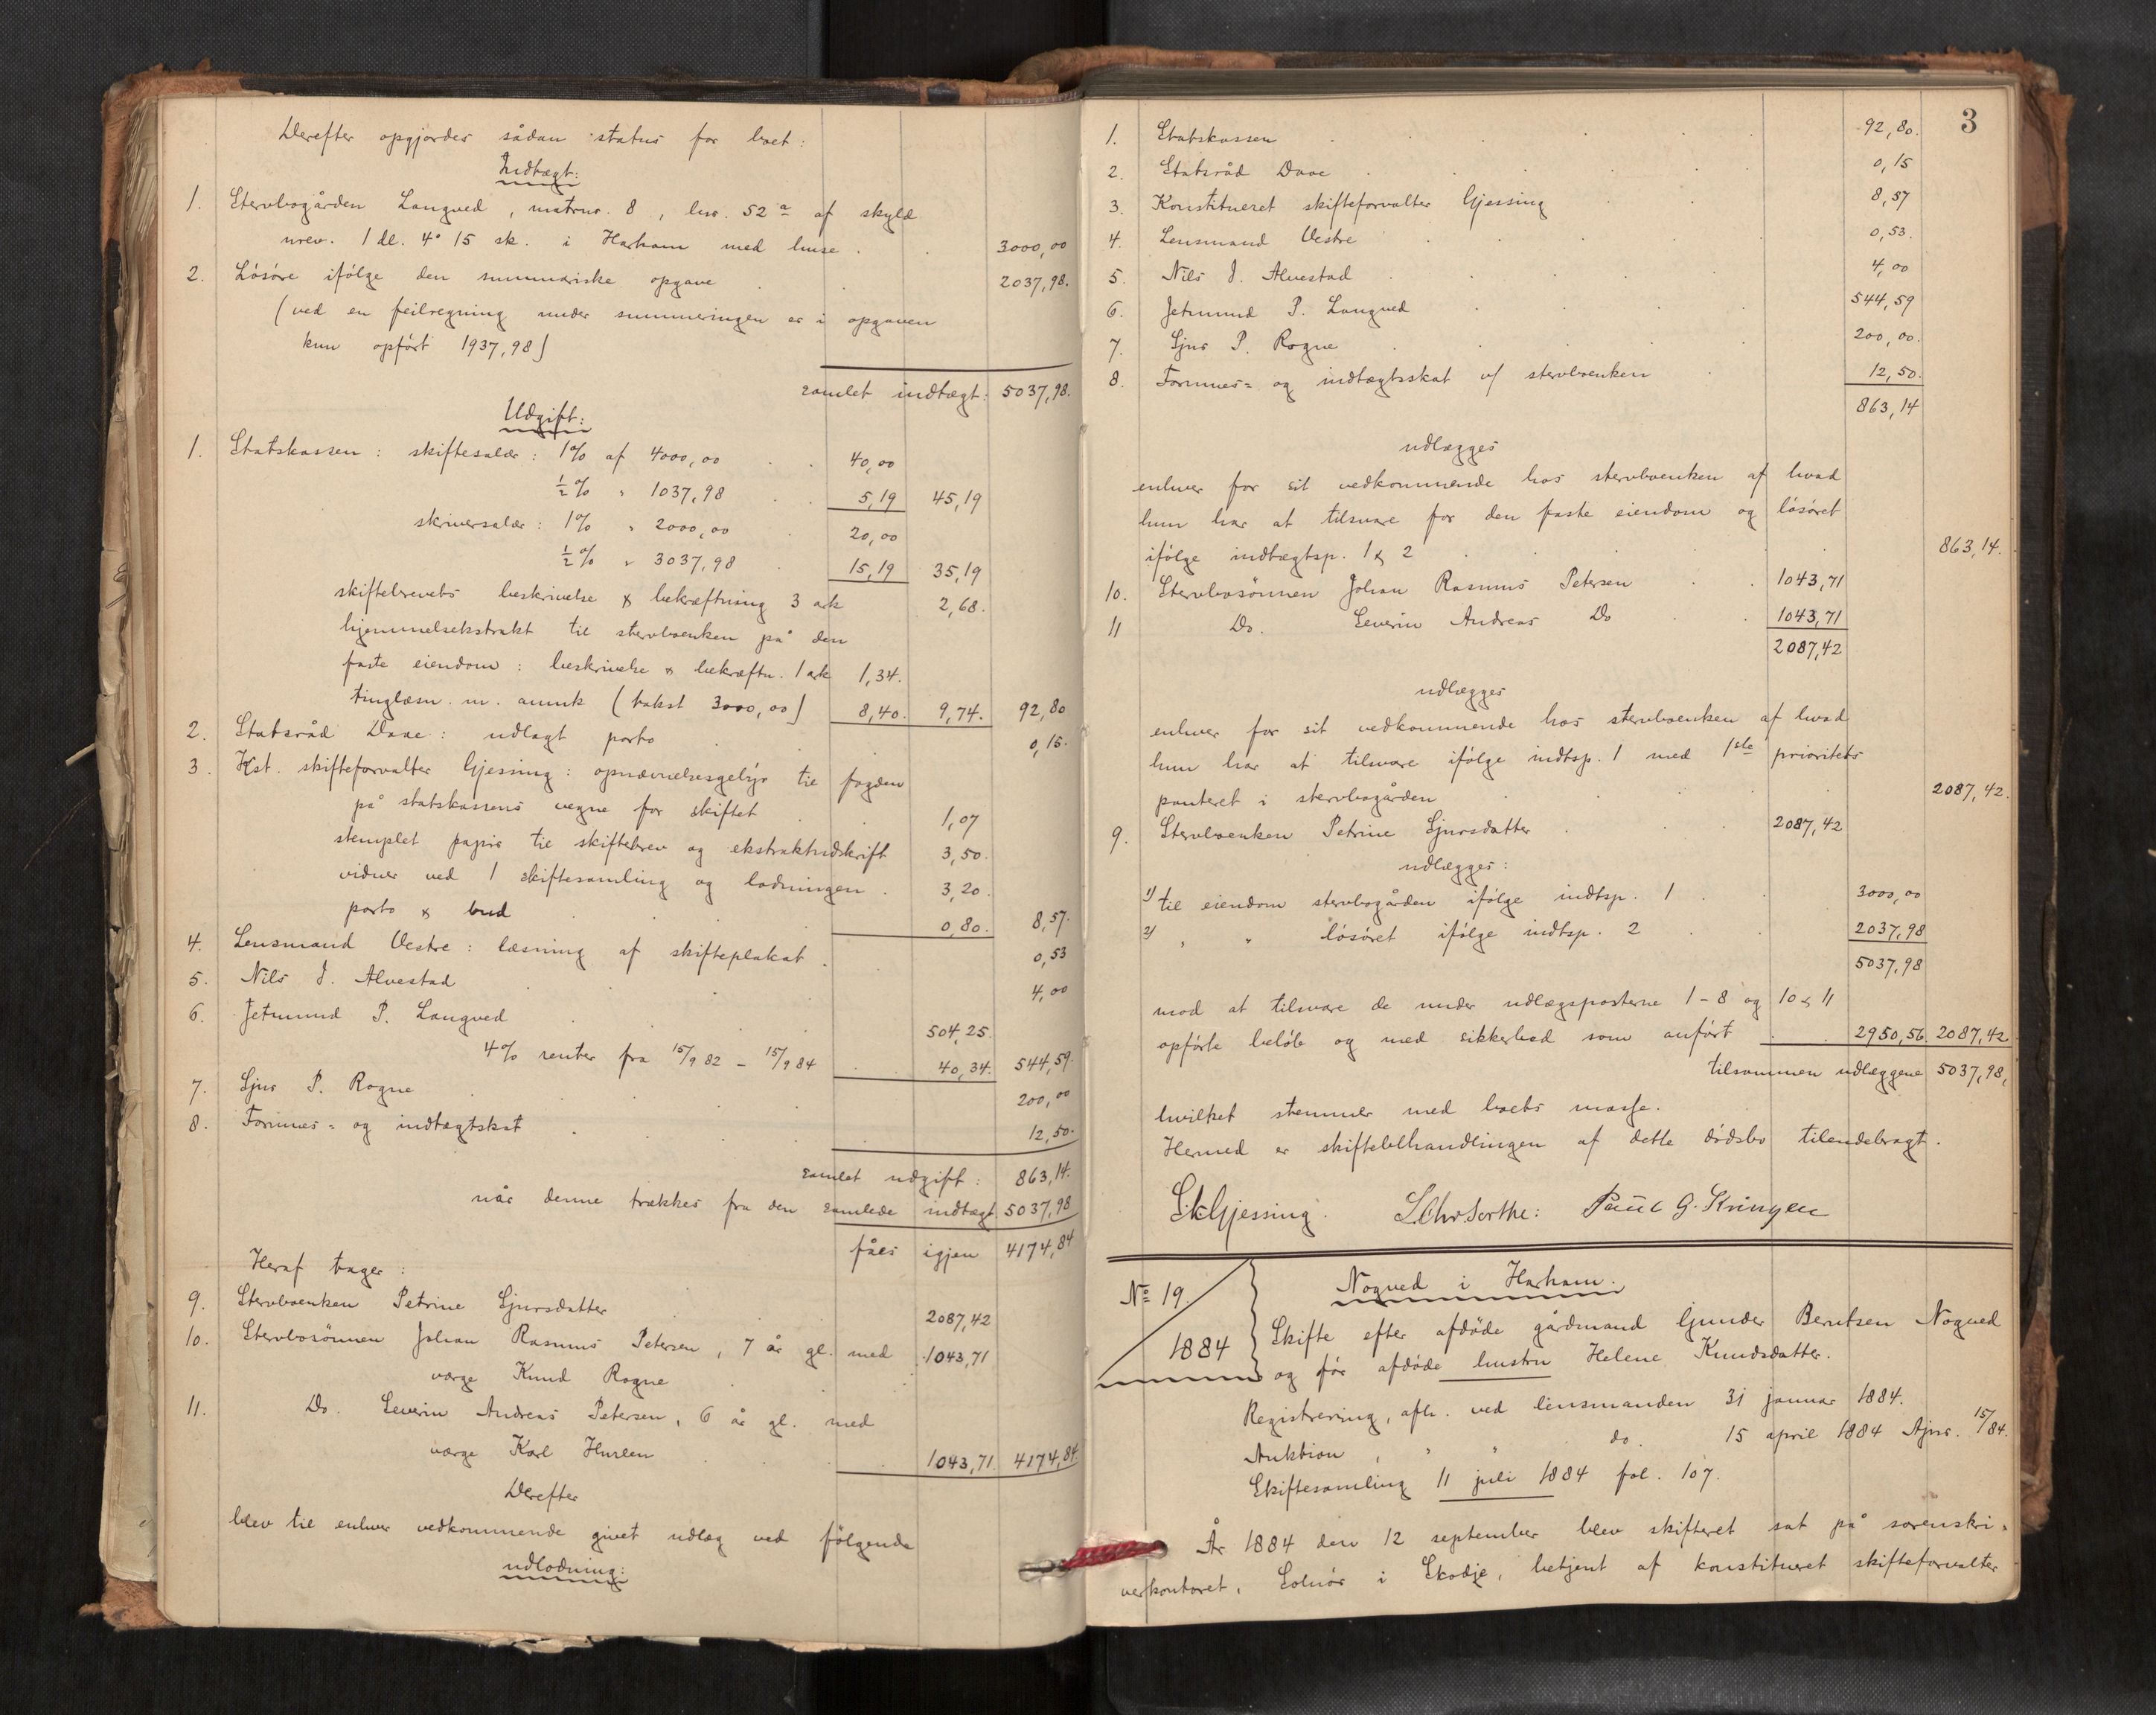 Derefter opgjordes sådan status for boet:
Indtægt:
1. Stervbogården Langved, matrnr. 8, lnr. 52 a af skyld
urev. 1 dl. 4 o 15 sk. i Harham med huse . 3000,00
2. Lösöre ifölge den summariske opgave 2037,98.
(ved en feilregning under summeringen er i opgaven
kun opfört 1937,98)
samlet indtægt: 5037,98.
Udgift:
1. Statskassen: skiftesalær: 1% af 4000,00 40,00
½% " 1037,98 5,19 45,19
skriversalær: 1% " 2000,00 20,00
½% " 3037,98 15,19 35,19
skiftebrevets beskrivelse & bekræftning 3 ark 2,68.
hjemmelsekstrakt til stervboenken på den
faste eiendom: beskrivelse & bekræftn. 1 ark 1,34.
tinglæsn. m. anmk (takst 3000,00) 8,40. 9,74. 92,80
2. Statsråd Daae: udlagt porto 0,15.
3. Kst. skifteforvalter Gjessing: opnævnelsesgebyr til fogden
på statskassens vegne for skiftet 1,07
stemplet papir til skiftebrev og ekstraktudskrift 3,50.
vidner ved 1 skiftesamling og lodningen . 3,20.
porto & bud 0,80. 8,57.
4. Lensmand Vestre: læsning af skifteplakat . 0,53
5. Nils J. Alvestad 4,00
6. Jetmund P. Langved 504,25.
4% renter fra 15/9 82 – 15/9 84 40,34. 544,59.
7. Sjur P. Rogne 200,00
8. Formues- og indtægtskat 12,50.
samlet udgift: 863,14.
når denne trækkes fra den samlede indtægt 5037,98
fåes igjen 4174,84
Heraf tager:
9. Stervboenken Petrine Sjursdatter 2087,42
10. Stervbosönnen Johan Rasmus Petersen, 7 år gl. med 1043,71
værge Knud Rogne
11. Do. Severin Andreas Petersen, 6 år gl. med
værge Karl Hurlen 1043,71. 4174,84.
Derefter
blev til enhver vedkommende givet udlæg ved fölgende
udlodning:
3
1. Statskassen 92,80.
2. Statsråd Daae 0,15
3. Konstitueret skifteforvalter Gjessing 8,57
4. Lensmand Vestre 0,53.
5. Nils J. Alvestad 4,00
6. Jetmund P. Langved 544,59
7. Sjur P. Rogne 200,00.
8. Formues- og indtægtsskat v/ stervboenken 12,50.
863,14
udlægges
enhver for sit vedkommende hos stervboenken af hvad
hun har at tilsvare for den faste eiendom og lösöret
ifölge indtægtsp. 1 & 2 863,14.
10. Stervbosönnen Johan Rasmus Petersen 1043,71
11 Do. Severin Andreas Do 1043,71
2087,42
udlægges
enhver for sit vedkommende hos stervboenken af hvad
hun har at tilsvare ifölge indtsp. 1 med 1ste prioritets
panteret i stervbogården 2087,42.
9. Stervboenken Petrine Sjursdatter 2087,42
udlægges:
1) til eiendom stervbogården ifölge indtsp. 1 3000,00
2) " " lösöret ifölge indtsp. 2 2037,98
5037,98
mod at tilsvare de under udlægsposterne 1-8 og 10 & 11
opförte belöb og med sikkerhed som anfört 2950,56 2087,42
tilsammen udlæggene 5037,98,
hvilket stemmer med boets masse.
Hermed er skiftebehandlingen af dette dödsbo tilendebragt.
Gjessing. Paul G. Kringen
No 19. Nogved i Harham.
1884 Skifte efter afdöde gårdmand Gunder Berntsen Nogved
og för afdöde hustru Helene Knudsdatter.
Registrering, afh. ved lensmanden 31 januar 1884.
Auktion, " " do. 15 april 1884 Ajnr. 15/84.
Skiftesamling 11 juli 1884 fol. 107.
År 1884 den 12 september blev skifteret sat på sorenskri-
verkontoret, Solnör i Skodje, betjent af konstitueret skifteforvalter